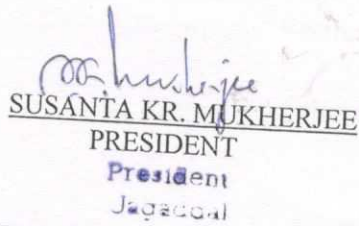 SUSANTA KR. MUKHERJEE
PRESIDENT
President